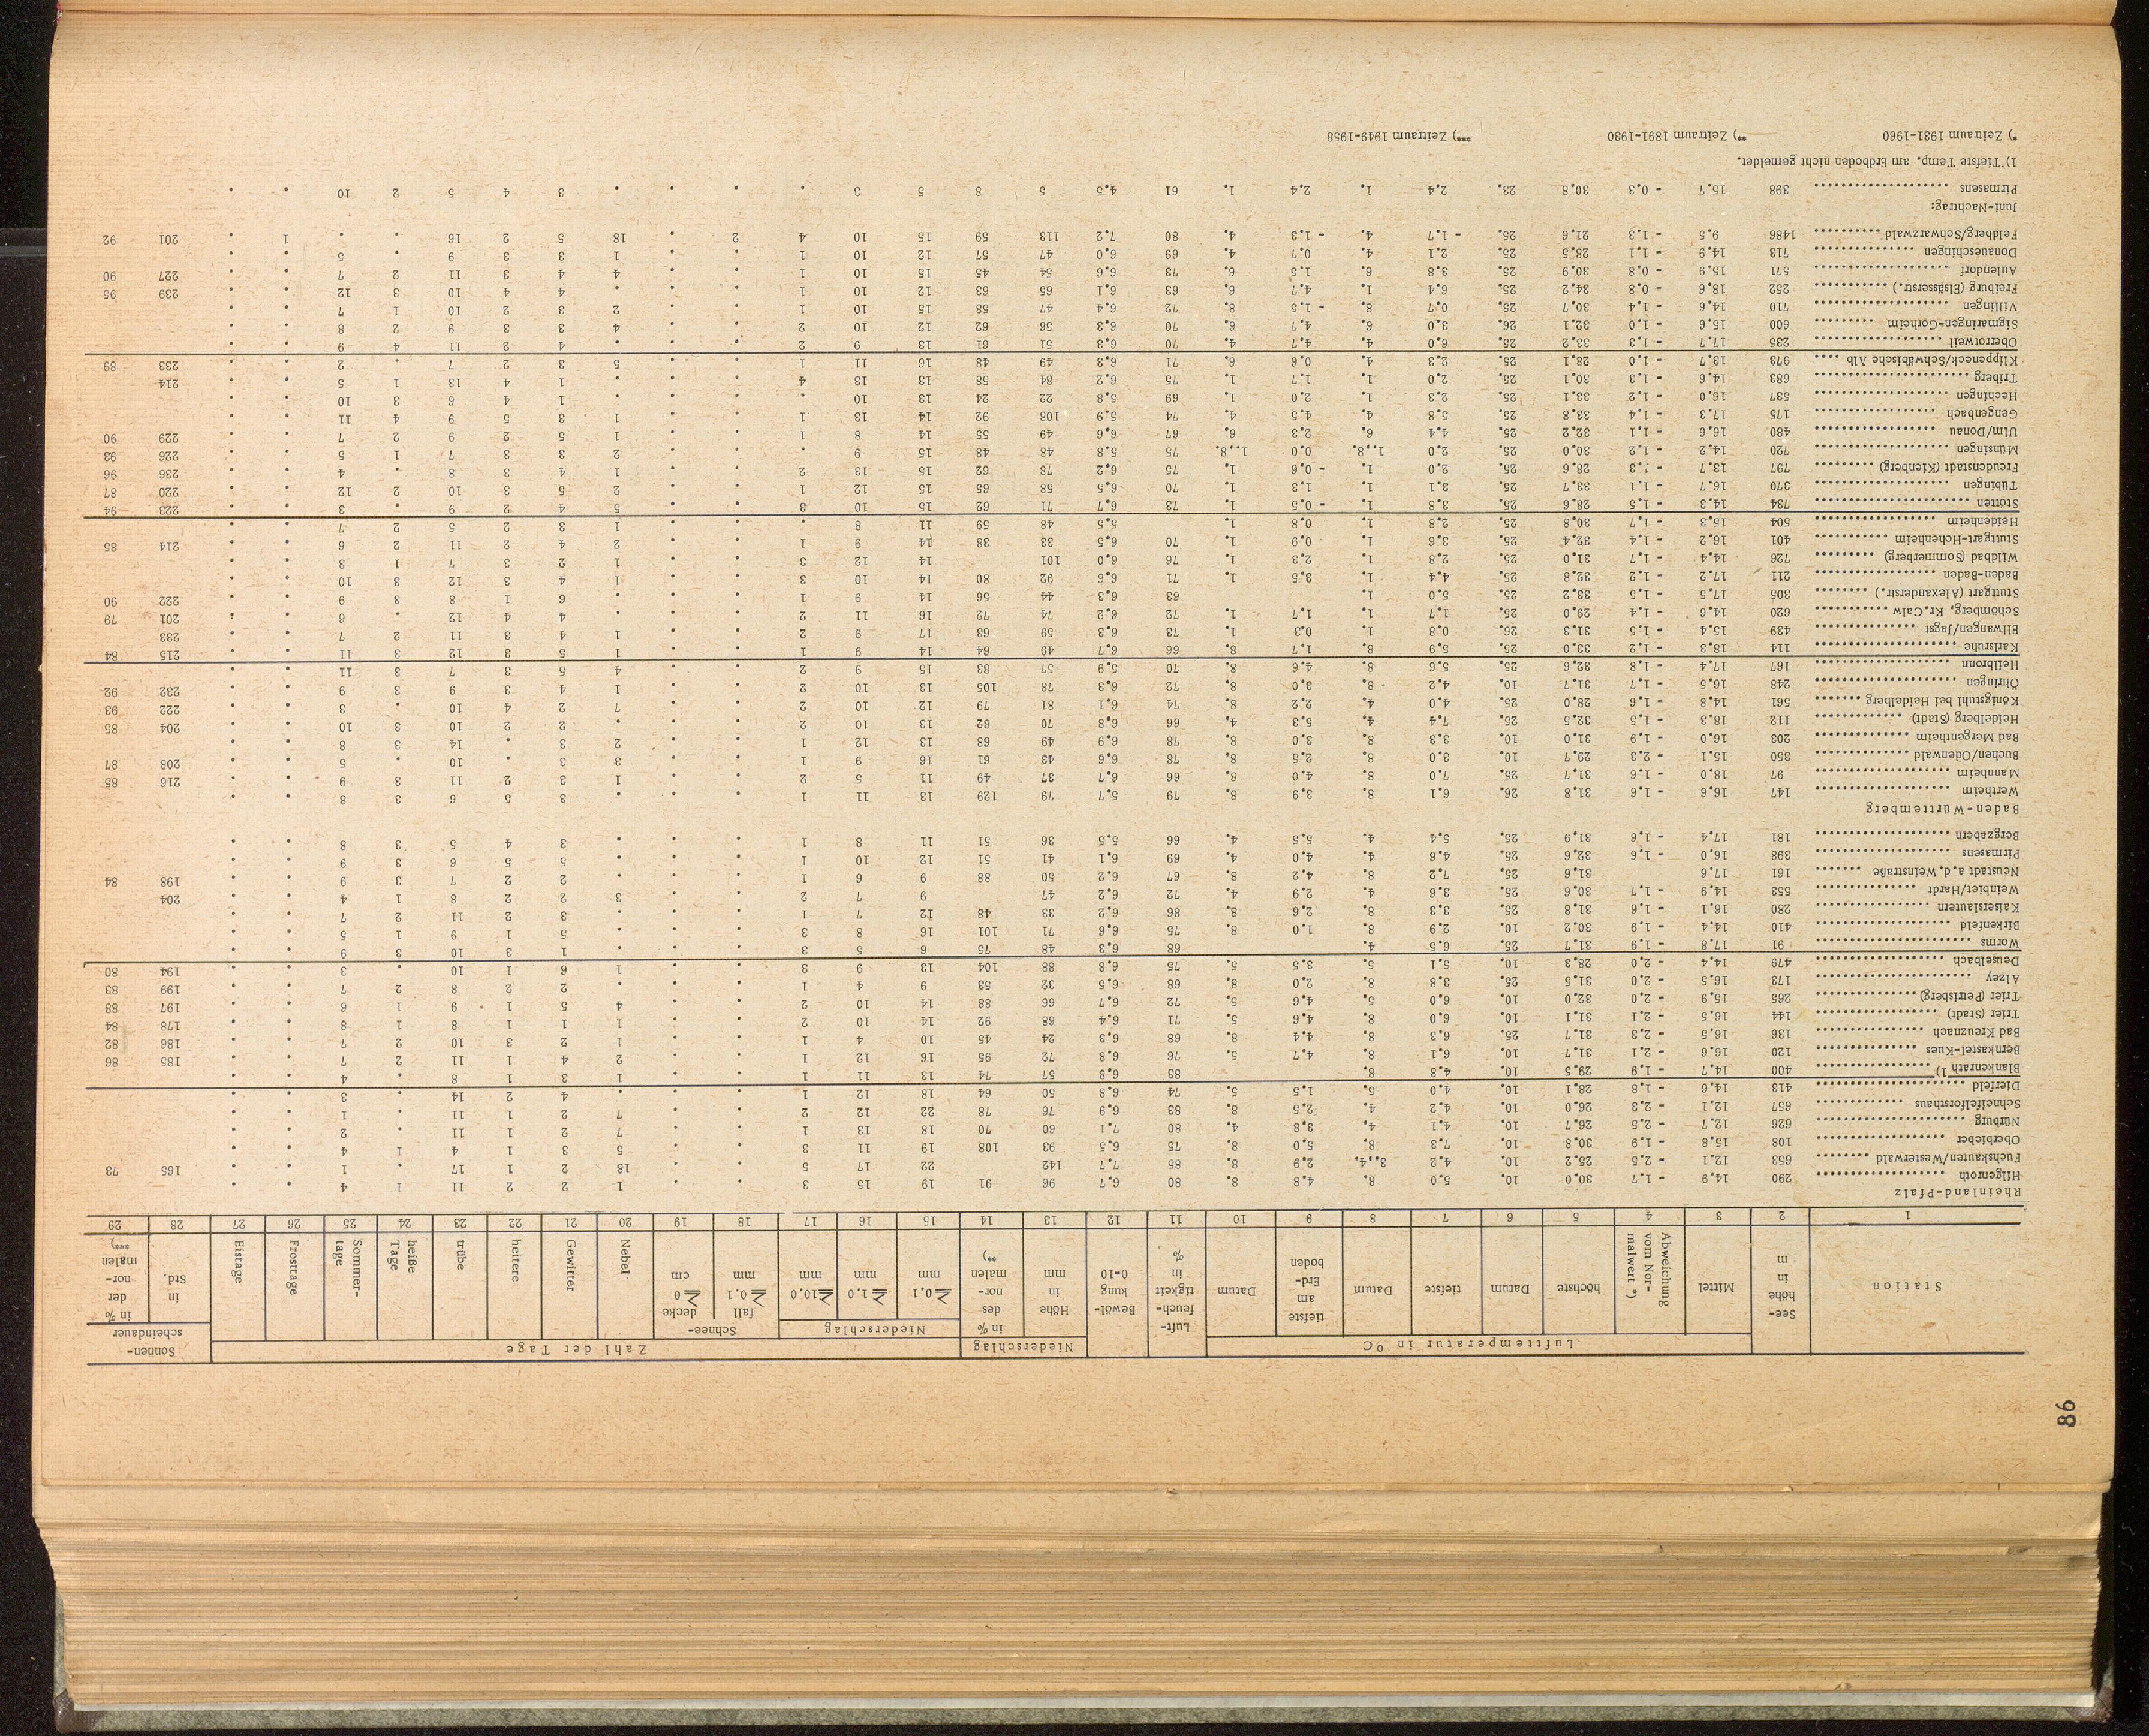 Station
See-
höhe
in
m
Lufttemperatur in °C
Mittel
Abweichung
vom Nor-
malwert *)
höchste
Datum
tiefste
Datum
tiefste
am
Erd-
boden
Datum
Luft-
feuch-
tigkeit
in
%
Bewöl-
kung
0-10
Niederschlag
Höhe
in
mm
in %
des
nor-
malen
**)
Zahl der Tage
Niederschlag
≥ 0,1
mm
≥ 1,0
mm
≥10,0
mm
Schnee-
fall
≥ 0,1
mm
decke
≥ 0
cm
Nebel
Gewitter
heitere
trübe
heiße
Tage
Sommer-
tage
Frosttage
Eistage
Sonnen-
scheindauer
in
Std.
in %
der
nor-
malen
***)
1 2 3 4 5 6 7 8 9 10 11 12 13 14 15 16 17 18 19 20 21 22 23 24 25 26 27 28 29
Rheinland-Pfalz
Hilgenroth 290 14,9 - 1,7 30,0 10. 5,0 8. 4,8 8. 80 6,7 96 91 19 15 3 . . 1 2 2 11 1 4 . .
Fuchskauten/Westerwald 653 12,1 - 2,5 25,2 10. 4,2 3.,4. 2,9 8. 85 7,7 142 22 17 5 . . 18 2 1 17 . 1 . . 165 73
Oberbieber 108 15,8 - 1,9 30,8 10. 7,3 8. 5,0 8. 75 6,5 93 108 19 11 3 . . 5 3 1 4 1 4 . .
Nürburg 626 12,7 - 2,5 26,7 10. 4,1 4. 3,8 4. 80 7,1 60 70 18 13 1 . . 7 2 1 11 . 2 . .
Schneifelforsthaus 657 12,1 - 2,3 26,0 10. 4,2 4. 2,5 8. 83 6,9 76 78 22 12 2 . . 7 2 1 11 . 1 . .
Dierfeld 413 14,6 - 1,8 28,1 10. 4,0 5. 1,5 5. 74 6,8 50 64 18 12 1 . . . 4 2 14 . 3 . .
Blankenrath 1) 400 14,7 - 1,9 29,5 10. 4,8 8. 83 6,8 57 74 13 11 1 . . 1 3 1 8 . 4 . .
Bernkastel-Kues 120 16,6 - 2,1 31,7 10. 6,1 8. 4,7 5. 76 6,8 72 95 16 12 1 . . 2 4 1 11 2 7 . . 185 86
Bad Kreuznach 136 16,5 - 2,3 31,7 25. 6,3 8. 4,4 8. 68 6,3 24 45 10 4 1 . . 1 2 3 10 2 7 . . 186 82
Trier (Stadt) 144 16,5 - 2,1 31,1 10. 6,0 8. 4,6 5. 71 6,4 68 92 14 10 2 . . 1 1 1 8 1 8 . . 178 84
Trier (Petrisberg) 265 15,9 - 2,0 32,0 10. 6,0 5. 4,6 5. 72 6,7 66 88 14 10 2 . . 4 5 1 9 1 6 . . 197 88
Alzey 173 16,5 - 2,0 31,5 25. 3,8 8. 2,0 8. 68 6,5 32 53 9 4 1 . . . 2 2 8 2 7 . . 199 83
Deuselbach 479 14,4 - 2,0 28,3 10. 5,1 5. 3,5 5. 75 6,8 88 104 13 9 3 . . 1 6 1 10 . 3 . . 194 80
Worms 91 17,8 - 1,9 31,7 25. 6,5 4. 68 6,3 48 75 6 5 3 . . . 1 3 10 3 9 . .
Birkenfeld 410 14,4 - 1,9 30,2 10. 2,9 8. 1,0 8. 75 6,6 71 101 16 8 3 . . . 5 1 9 1 5 . .
Kaiserslautern 280 16,1 - 1,6 31,8 25. 3,3 8. 2,6 8. 86 6,2 33 48 12 7 1 . . . 3 2 11 2 7 . .
Weinbiet/Hardt 553 14,9 - 1,7 30,6 25. 3,6 4. 2,9 4. 72 6,2 47 9 7 2 . . 3 2 2 8 1 4 . . 204
Neustadt a.d.Weinstraße 161 17,6 31,6 25. 7,2 8. 4,2 8. 67 6,2 50 88 9 6 1 . . . 2 2 7 3 9 . . 198 84
Pirmasens 398 16,0 - 1,6 32,6 25. 4,6 4. 4,0 4. 69 6,1 41 51 12 10 1 . . . 5 5 6 3 9 . .
Bergzabern 181 17,4 - 1,6 31,9 25. 5,4 4. 5,5 4. 66 5,5 36 51 11 8 1 . . . 3 4 5 3 8 . .
Baden-Württemberg
Wertheim 147 16,6 - 1,6 31,8 26. 6,1 8. 3,9 8. 79 5,7 79 129 13 11 1 . . . 3 5 6 3 8 . .
Mannheim 97 18,0 - 1,6 31,7 25. 7,0 8. 4,0 8. 66 6,7 37 49 11 5 2 . . 1 3 2 11 3 9 . . 216 85
Buchen/Odenwald 350 15,1 - 2,3 29,7 10. 3,0 8. 2,5 8. 78 6,6 43 61 16 9 1 . . 3 3 . 10 . 5 . . 208 87
Bad Mergentheim 203 16,0 - 1,9 31,0 10. 3,3 8. 3,0 8. 78 6,9 49 68 13 12 1 . . 2 3 . 14 3 8 . .
Heidelberg (Stadt) 112 18,3 - 1,5 32,5 25. 7,4 4. 5,3 4. 66 6,8 70 82 13 10 2 . . . 2 2 10 3 10 . . 204 85
Königstuhl bei Heidelberg 561 14,8 - 1,6 28,0 25. 4,0 4. 2,2 8. 74 6,1 81 79 12 10 2 . . 7 2 4 10 . 3 . . 222 93
Öhringen 248 16,5 - 1,7 31,7 10. 4,2 8. 3,0 8. 72 6,3 78 105 13 10 2 . . 1 4 3 9 3 9 . . 232 92
Heilbronn 167 17,4 - 1,8 32,6 25. 5,6 8. 4,6 8. 70 5,9 57 83 15 9 2 . . 4 5 3 7 3 11 . .
Karlsruhe 114 18,3 - 1,2 33,0 25. 5,9 8. 1,7 8. 66 6,7 49 64 14 9 1 . . 1 5 3 12 3 11 . . 215 84
Ellwangen/Jagst 439 15,4 - 1,5 31,3 26. 0,8 1. 0,3 1. 73 6,3 59 63 17 9 2 . . 1 4 3 11 2 7 . . 233
Schömberg, Kr.Calw 620 14,6 - 1,4 29,0 25. 1,7 1. 1,7 1. 72 6,2 74 72 16 11 2 . . . 4 4 12 . 6 . . 201 79
Stuttgart (Alexanderstr.) 305 17,5 - 1,5 33,2 25. 5,0 1. 63 6,3 44 56 14 9 1 . . . 6 1 8 3 9 . . 222 90
Baden-Baden 211 17,2 - 1,2 32,8 25. 4,4 1. 3,5 1. 71 6,6 92 80 14 10 3 . . 1 4 3 12 3 10 . .
Wildbad (Sommerberg) 726 14,4 - 1,7 31,0 25. 2,8 1. 2,3 1. 76 6,0 101 14 12 3 . . 1 2 3 7 1 3 . .
Stuttgart-Hohenheim 401 16,2 - 1,4 32,4 25. 3,6 1. 0,9 1. 70 6,5 33 38 14 9 1 . . 2 4 2 11 2 6 . . 214 85
Heidenheim 504 15,3 - 1,7 30,8 25. 2,8 1. 0,8 1. 5,5 48 59 11 8 . . . 1 3 2 5 2 7 . .
Stötten 734 14,3 - 1,5 28,6 25. 3,8 1. - 0,5 1. 73 6,7 71 62 15 10 3 . . 5 4 2 9 . 3 . . 223 94
Tübingen 370 16,7 - 1,1 33,7 25. 3,1 1. 1,3 1. 70 6,5 58 65 15 12 1 . . 2 5 3 10 2 12 . . 220 87
Freudenstadt (Kienberg) 797 13,7 28,6 25. 2,0 1. - 0,6 1. 75 6,2 78 62 15 13 2 . . 1 4 3 8 . 4 . . 236 96
Münsingen 720 14,2 - 1,2 30,0 25. 2,0 1.,8. 0,0 1.,8. 75 5,8 48 48 15 9 . . . 2 3 3 7 1 5 . . 226 93
Ulm/Donau 480 16,6 - 1,1 32,2 25. 4,4 6. 2,3 6. 67 6,6 49 55 14 8 1 . . 1 5 2 9 2 7 . . 229 90
Gengenbach 175 17,3 - 1,4 33,8 25. 5,8 4. 4,5 4. 74 5,9 108 92 14 13 1 . . 1 3 5 9 4 11 . .
Hechingen 537 16,0 - 1,2 33,1 25. 2,3 1. 2,0 1. 69 5,8 22 24 13 10 . . . . 1 4 6 3 10 . .
Triberg 683 14,6 - 1,3 30,1 25. 2,0 1. 1,7 1. 75 6,2 84 58 13 13 4 . . . 1 4 13 1 5 . . 214
Klippeneck/Schwäbische Alb 973 13,7 - 1,0 28,1 25. 2,3 4. 0,6 6. 71 6,3 49 48 16 11 1 . . 5 3 2 7 . 2 . . 233 89
Oberrotweil 235 17,7 - 1,3 33,2 25. 6,0 4. 4,7 4. 70 6,3 51 61 13 9 2 . . . 4 2 11 4 9 . .
Sigmaringen-Gorheim 600 15,6 - 1,0 32,1 26. 3,0 6. 4,7 6. 70 6,3 56 62 12 10 2 . . 4 3 3 9 2 8 . .
Villingen 710 14,6 - 1,4 30,7 25. 0,7 8. - 1,5 8. 72 6,4 47 58 15 10 1 . . 2 3 2 10 1 7 . .
Freiburg (Elsässerstr.) 252 18,6 - 0,8 34,2 25. 6,4 1. 4,7 6. 63 6,1 65 63 12 10 1 . . . 4 4 10 3 12 . . 239 95
Aulendorf 571 15,9 - 0,8 30,9 25. 3,8 6. 1,5 6. 73 6,6 54 45 15 10 1 . . 4 4 3 11 2 7 . . 227 90
Donaueschingen 713 14,9 - 1,1 28,5 25. 2,1 4. 0,7 4. 69 6,0 47 57 12 10 1 . . 1 3 3 9 . 5 . .
Feldberg/Schwarzwald 1486 9,5 - 1,3 21,6 26. - 1,7 4. - 1,3 4. 80 7,2 113 59 15 10 4 2 . 18 5 2 16 . . 1 . 201 92
Juni-Nachtrag:
Pirmasens 398 15,7 - 0,3 30,8 23. 2,4 1. 2,4 1. 61 4,5 5 8 5 3 . . . . 3 4 5 2 10 . . . .
1) Tiefste Temp. am Erdboden nicht gemeldet.
*) Zeitraum 1931-1960 **) Zeitraum 1891-1930 ***) Zeitraum 1949-1958